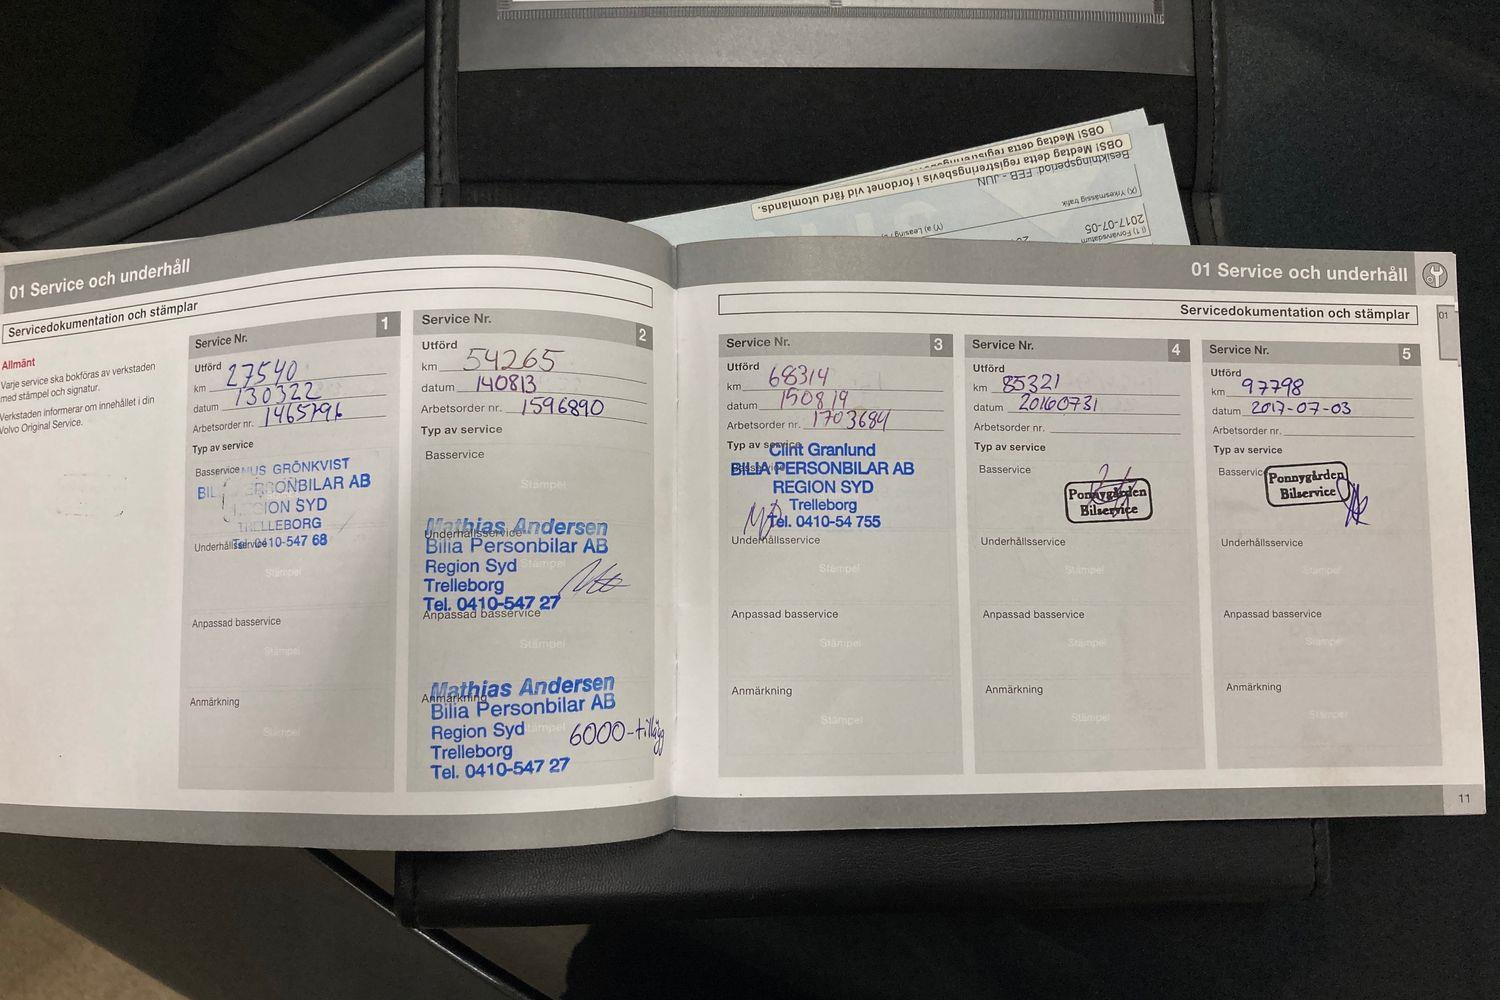 OBS! Medtag detta
OBS! Medtag detta registreringsbevis i fordonet vid färd utomlands.
Besiktningsperiod: FEB - JUN
(X) Yrkesmässig trafik
(Y) a) Leasing
(I1) Förvärvsdatum
2017-07-05
01 Service och underhåll
Servicedokumentation och stämplar
Allmänt
Varje service ska bokföras av verkstaden
med stämpel och signatur.
Verkstaden informerar om innehållet i din
Volvo Original Service.
Service Nr. 1
Utförd
km 27540
datum 130322
Arbetsorder nr. 1465796
Typ av service
Basservice
NUS GRÖNKVIST
BIL PERSONBILAR AB
REGION SYD
TRELLEBORG
Tel. 0410-547 68
Underhållsservice
Stämpel
Anpassad basservice
Stämpel
Anmärkning
Stämpel
Service Nr. 2
Utförd
km 54265
datum 140813
Arbetsorder nr. 1596890
Typ av service
Basservice
Stämpel
Mathias Andersen
Underhållsservice
Bilia Personbilar AB
Region Syd Stämpel
Trelleborg
Tel. 0410-547 27
Anpassad basservice
Stämpel
Mathias Andersen
Anmärkning
Bilia Personbilar AB
Region Syd Stämpel 6000-tillägg
Trelleborg
Tel. 0410-547 27
01 Service och underhåll
01
Servicedokumentation och stämplar
Service Nr. 3
Utförd
km 68314
datum 150819
Arbetsorder nr. 1703684
Typ av service
Clint Granlund
Basservice
BILIA PERSONBILAR AB
REGION SYD
Trelleborg
Tel. 0410-54 755
Underhållsservice
Stämpel
Anpassad basservice
Stämpel
Anmärkning
Stämpel
Service Nr. 4
Utförd
km 85321
datum 20160731
Arbetsorder nr.
Typ av service
Basservice
Ponnygården
Bilservice
Underhållsservice
Stämpel
Anpassad basservice
Stämpel
Anmärkning
Stämpel
Service Nr. 5
Utförd
km 97798
datum 2017-07-03
Arbetsorder nr.
Typ av service
Basservice
Ponnygården
Bilservice
Underhållsservice
Stämpel
Anpassad basservice
Stämpel
Anmärkning
Stämpel
11